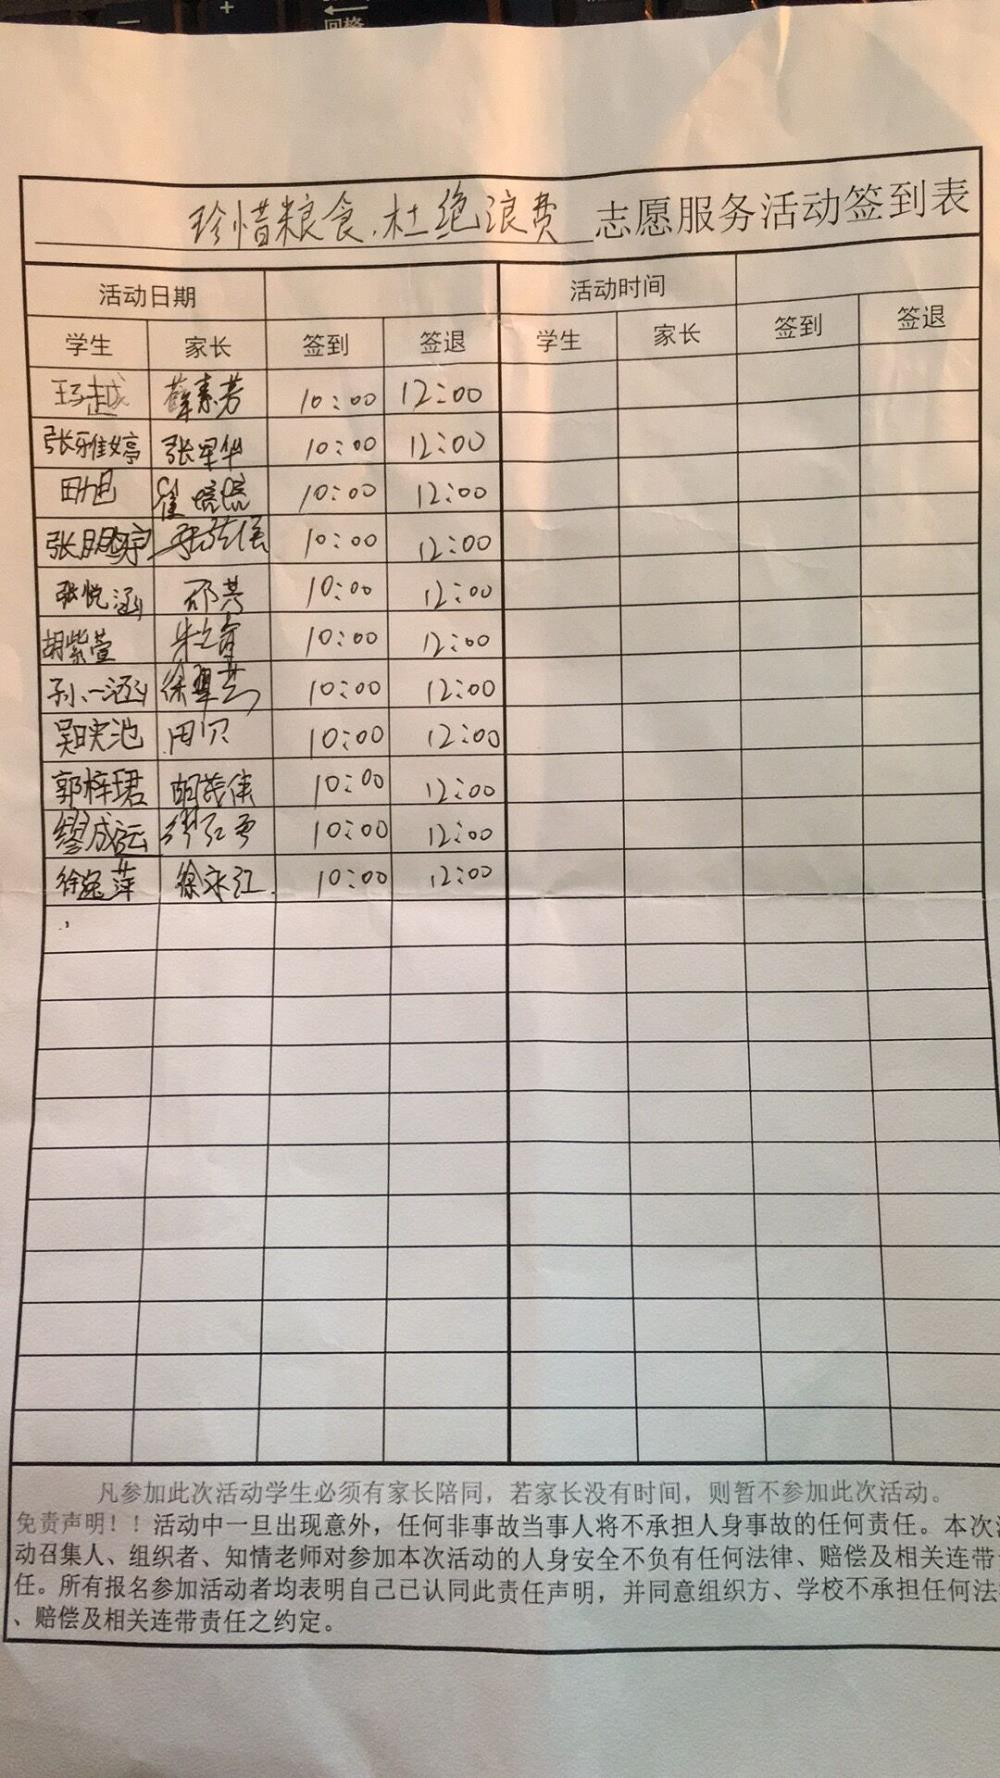 回格
珍惜粮食、杜绝浪费 志愿服务活动签到表
活动日期 活动时间
学生 家长 签到 签退 学生 家长 签到 签退
薛素芳 10:00 12:00
张雅婷 张早华 10:00 12:00
田旭 10:00 12:00
10:00 12:00
张悦涵 邵芳 10:00 12:00
胡紫萱 10:00 12:00
孙一涵 徐翠兰 10:00 12:00
吴映池 周贝 10:00 12:00
郭梓珺 胡茂伟 10:00 12:00
缪成运 10:00 12:00
徐逸萍 徐永江 10:00 12:00
凡参加此次活动学生必须有家长陪同，若家长没有时间，则暂不参加此次活动。
免责声明！！活动中一旦出现意外，任何非事故当事人将不承担人身事故的任何责任。本次活
动召集人、组织者、知情老师对参加本次活动的人身安全不负有任何法律、赔偿及相关连带
任。所有报名参加活动者均表明自己已认同此责任声明，并同意组织方、学校不承担任何法
、赔偿及相关连带责任之约定。